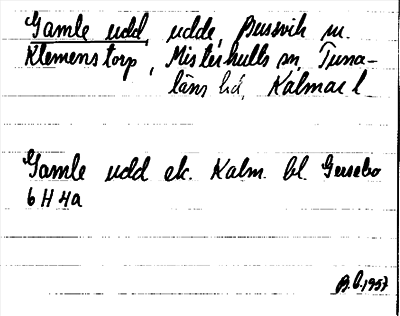 Gamle udd, udde, Bussvik m.
Klemenstorp, Misterhults sn, Tuna-
läns hd, Kalmar l
Gamle udd ek. Kalm. bl. Gersebo
6 H 4a
B.O. 1957